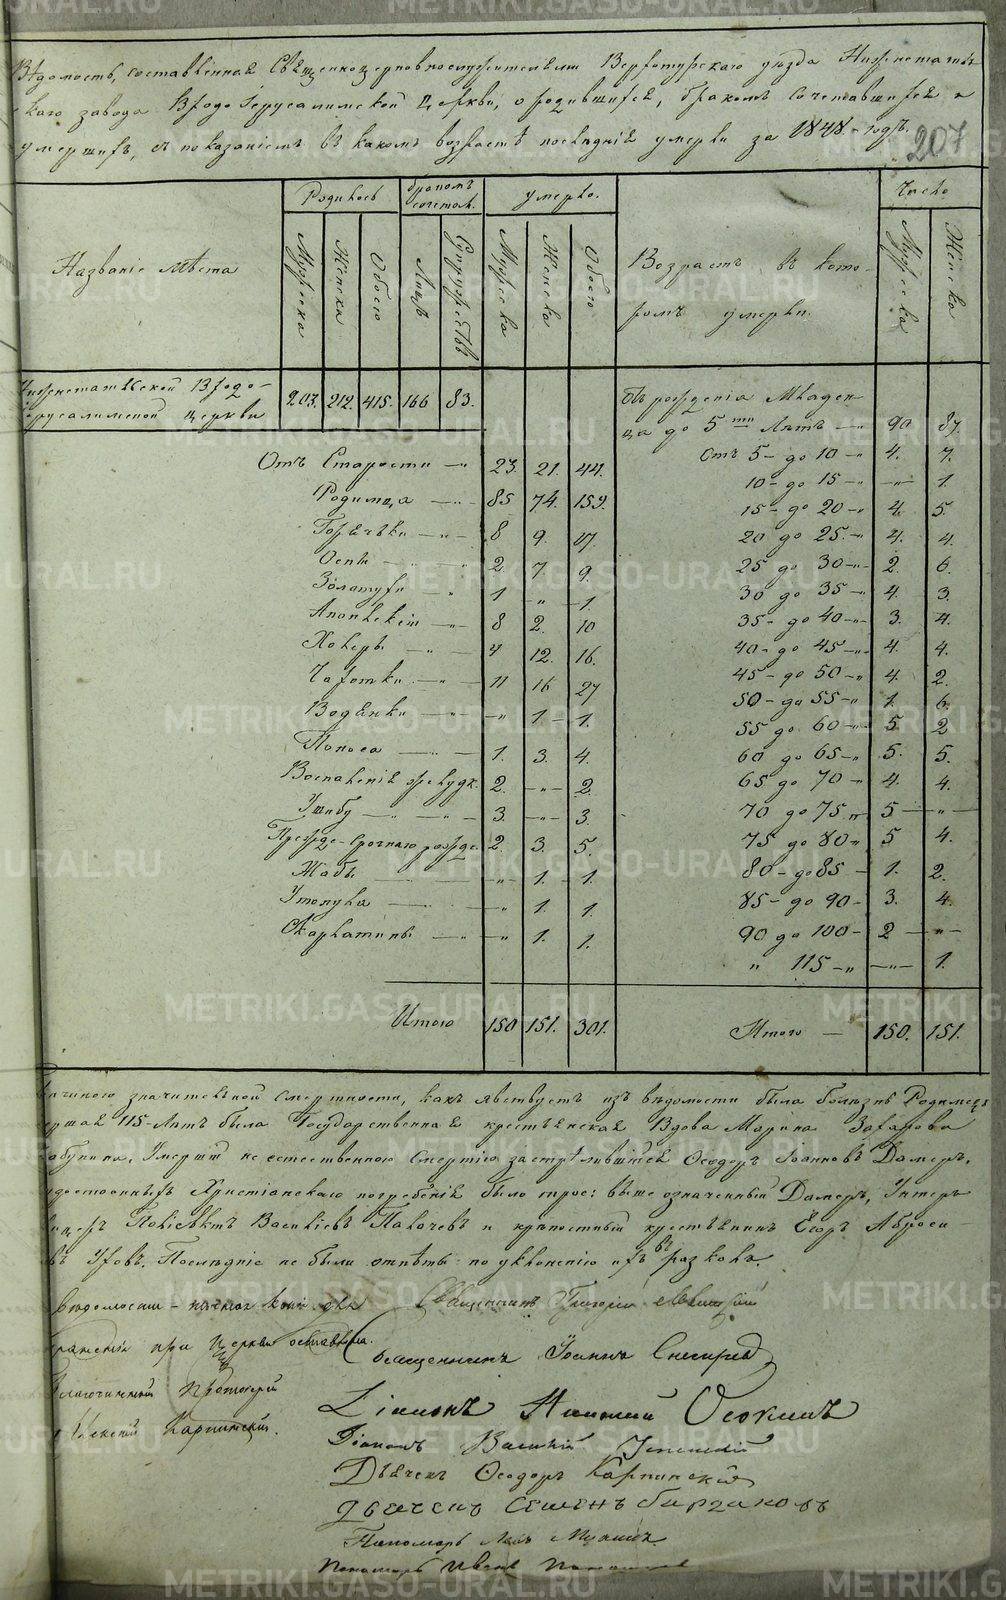 Вѣдомость, составленная Священноцерковнослужителями Верхотурскаго уѣзда Нижнетагиль
скаго завода Входоіерусалимской церкви, о родившихся, бракомъ сочетавшихся и
умершихъ, съ показаніемъ въ какомъ возрастѣ послѣдніе умерли за 1848. годъ.
207
Названіе мѣста
Родилось
Мужеска
Женска
Обоего
бракомъ сочетал.
Лицъ
Супружествъ
умерло.
Мужеска
Женска
Обоего
Возрастъ въ кото-
ромъ умерли.
Число
Мужеска
Женска
Нижнетагильской Входо-
іерусалимской церкви
203. 212. 415. 166 83.
Отъ Старости 23. 21. 44.
Родимца 85. 74. 159.
Горячки 8 9. 17.
Оспы 2. 7. 9.
Золотухи 1 „ 1.
Апоплексіи 8 2. 10
Холеры 4 12. 16.
Чахотки 11 16 27
Водянки „ 1 1.
Поноса 1. 3. 4.
Воспаленія желудк. 2. „ 2.
Ушибу 3. „ 3.
Прежде-срочнаго рожде. 2. 3. 5.
Жабы „ 1. 1.
Утонула „ 1. 1.
Скарлатины „ 1. 1.
Итого 150 151. 301.
Отъ рожденія Младен-
ца до 5ти Лѣтъ 90. 87.
Отъ 5 до 10 4. 7.
10 до 15 „ 1.
15 до 20 4. 5.
20 до 25. 4. 4.
25 до 30 2. 6.
30 до 35 4. 3.
35 до 40 3. 4.
40 до 45 4. 4.
45 до 50 4. 2.
50 до 55 1. 6.
55 до 60 5 2
60 до 65 5. 5.
65 до 70 4. 4.
70 до 75 5 „
75 до 80 5 4.
80 до 85 1. 2.
85 до 90 3. 4.
90 до 100 2 „
„ 115 „ 1.
Итого 150. 151.
значительной смертности, какъ явствуетъ изъ вѣдомости была болѣзнь Родимецъ
115-Лѣтъ была Государственная крестьянская Вдова Марина Захарова
Умершій неестественною смертію застрѣлившійся Ѳеодоръ Іоанновъ Дамеръ.
Христіанскаго погребенія было трое: выше означенный Дамеръ, Унтеръ
Василіевъ Палачевъ и крѣпостный крестьянинъ Егоръ Аброси
Послѣдніе не были отпѣты по уклоненію ихъ въ расколъ.
Священникъ Григорій
при Церкви оставлена.
Священникъ Іоаннъ Снегирев
Благочинный Протоіерей
Карпинскій.
Діаконъ Осокинъ
Діаконъ Василій Успенскій
Дьячекъ Ѳеодоръ Карпинскій
Дьячекъ Семенъ Бирзаковъ
Пономарь
Пономарь Иванъ
METRIKI.GASO-URAL.RU